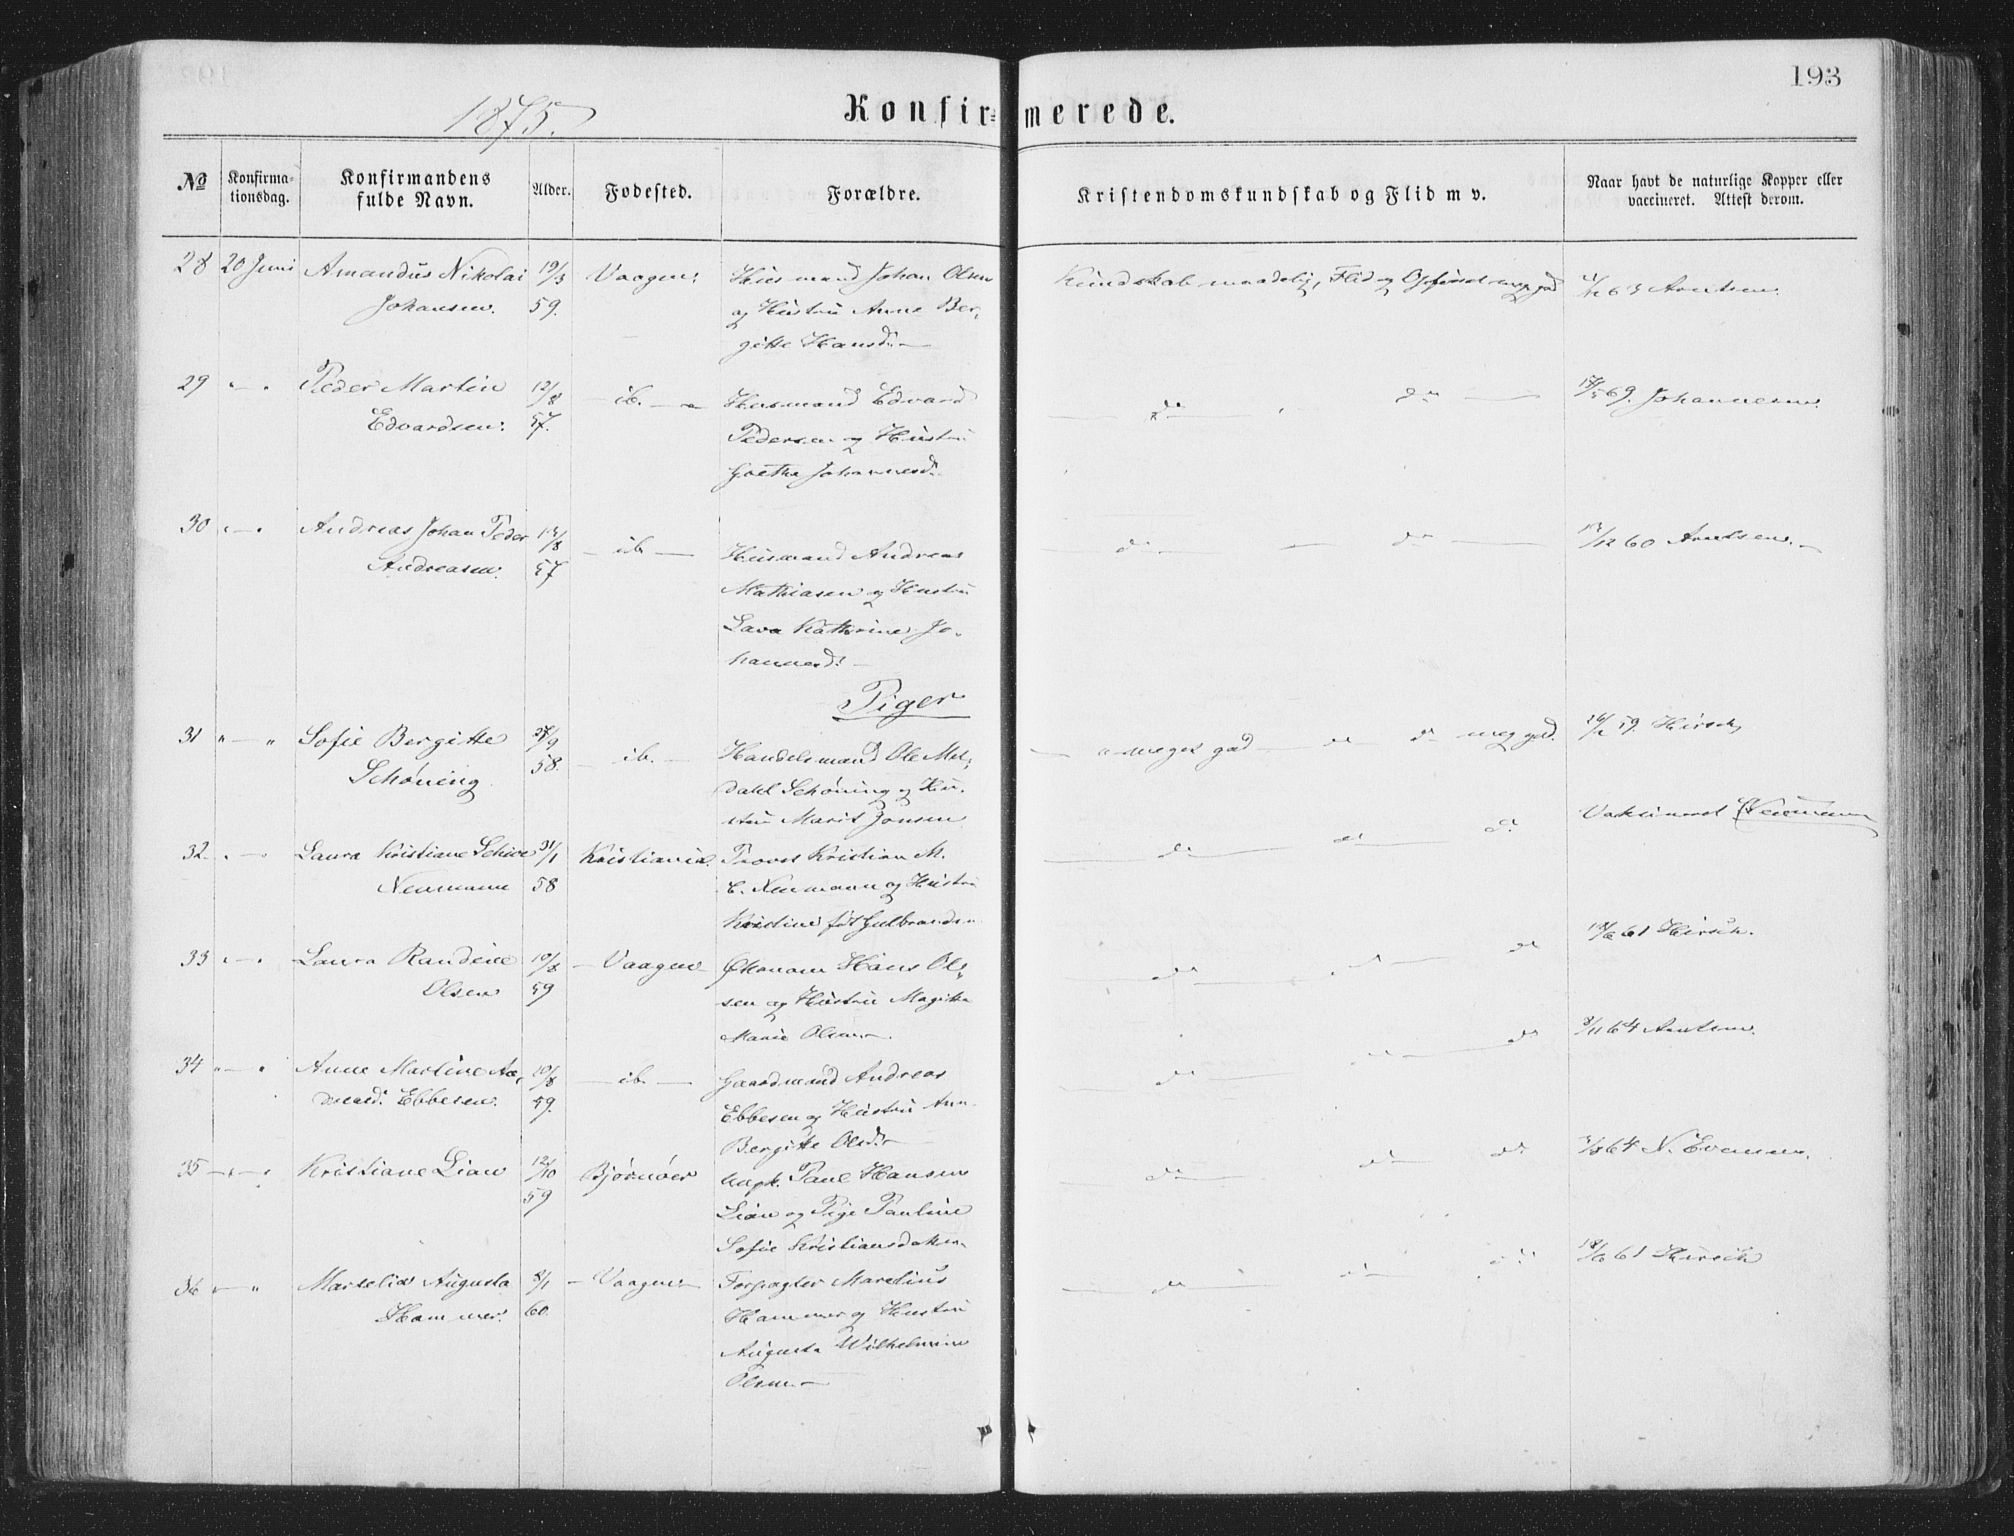 193
1875.
Konfirmerede.
№
Konfirma-
tionsdag.
Konfirmandens
fulde Navn.
Alder.
Fødested.
Forældre.
Kristendomskundskab og Flid m v.
Naar havt de naturlige Kopper eller
vaccineret. Attest derom.
28 20 Juni Amandus Nikolai 19/3 Vaagen. Husmand Johan Olsen Kundskab maadelig, Flid og Opførsel meg. god 63 Arntsen.
Johansen. 59. og Hustru Anne Ber-
gitte Hansd.
29 " — " Peder Martin 12/8 — ib. — Husmand Edvard — do — do — 17/5 69. Johannesen.
Edvardsen. 57. Pedersen og Hustru
Grethe Johannesd.
30 " — " Andreas Johan Peder 13/8 — ib — Husmand Andreas — do — do — 13/12 60 Arntsen.
Andreasen. 57 Mathiasen og Hustru
Lava Kathrine Jo-
hannesd.
Piger
31 " — " Sofie Bergitte /9 — ib. — Handelsmand Ole Mel- — " meget god — do meg. god. 59. Hirsch
Schøning 58. dahl Schøning og Hu-
stru Marit Jonsen
32. " — " Laura Kristiane Schive 31/1 Kristiania. Provst Kristian M. — do — do — do Vaksineret Neumann
Neumann 58 C. Neumann og Hustru
Kristine født Gulbrandsen
33 " — " Laura Randine 10/8 — Vaagen — Økonom Hans Ol- — do — do — do 18/6 61 Hirsch.
Olsen 59 sen og Hustru Magitta
Marie Olsen.
34 " — " Anne Martine An- 10/8 — ib. — Gaardmand Andreas — do — do 8/11 64 Arntsen.
dreasd. Ebbesen. 59. Ebbesen og Hustru Ann
Bergitte Olsd.
35 — " — " Kristiane Lian 12/10 Bjørnøer Ungk. Paul Hansen — do — do — do /8 64 N. Evensen.
59 Lian og Pige Pauline
Sofie Kristiansdatter
36 " — " Marselia Augusta 8/1 — Vaagen — Forpagter Marelius — do — do — do 18/6 61 Hirsch
Hammer. 60. Hammer og Hustru
Augusta Wilhelmine
Olsen. —